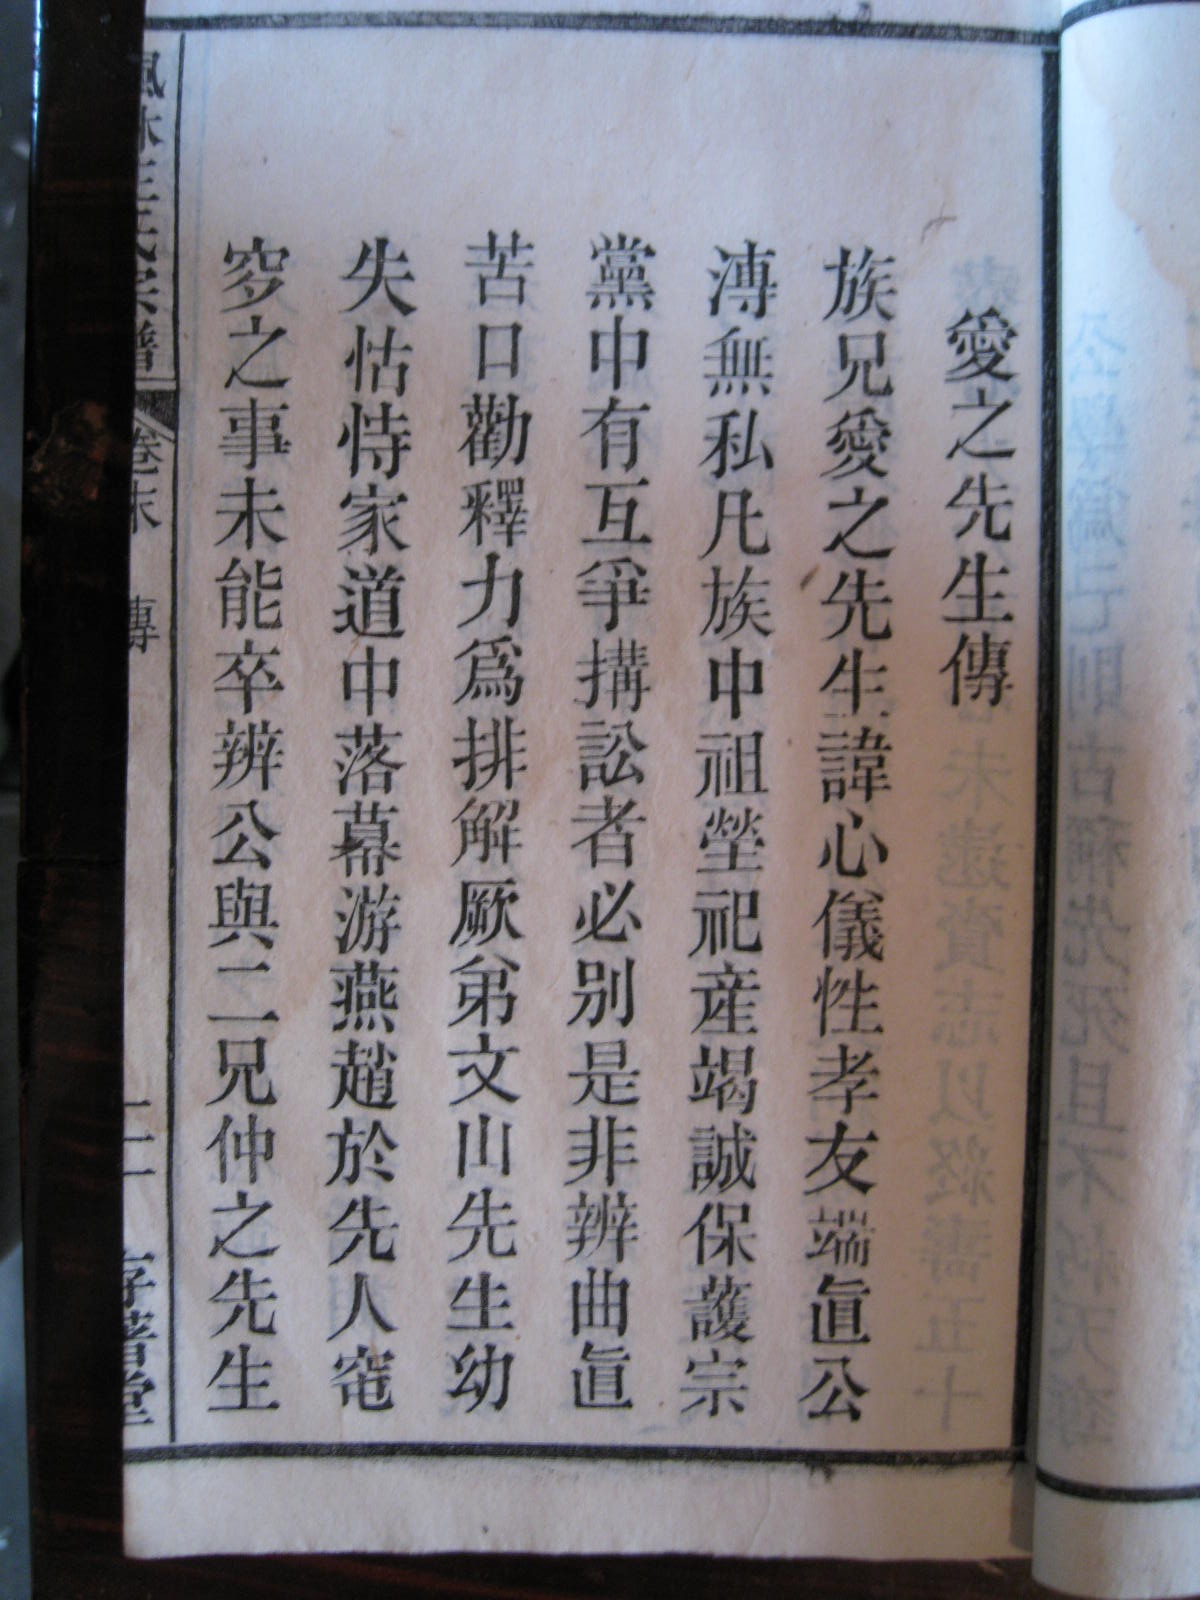 愛之先生傳
族兄愛之先生諱心儀性孝友端直公
溥無私凡族中祖塋祀産竭誠保護宗
黨中有互爭搆訟者必別是非辨曲直
苦口勸釋力爲排解厥弟文山先生幼
失怙恃家道中落幕游燕趙於先人窀
穸之事未能卒辨公與二兄仲之先生
王氏宗譜
卷末
傳